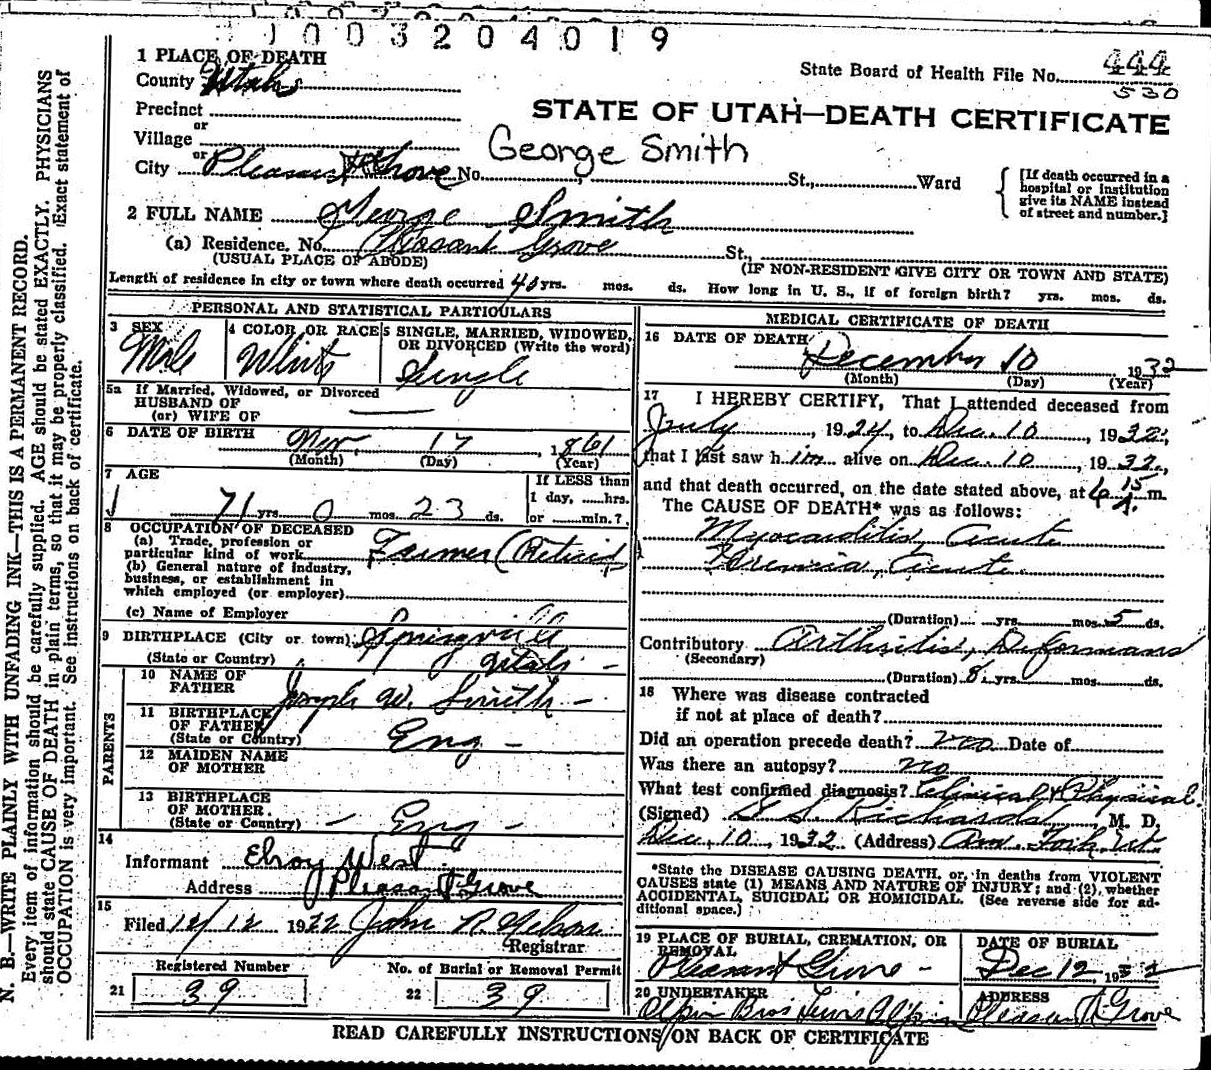 1003204019
1 PLACE OF DEATH
County Utah
State Board of Health File No. 444
530
Precinct
STATE OF UTAH—DEATH CERTIFICATE
or
Village
George Smith
or
City Pleasant Grove No. St., Ward
[If death occurred in a hospital or institution give its NAME instead of street and number.]
2 FULL NAME George Smith
(a) Residence. No. Pleasant Grove St.,
(USUAL PLACE OF ABODE) (IF NON-RESIDENT GIVE CITY OR TOWN AND STATE)
Length of residence in city or town where death occurred 40 yrs. mos. ds. How long in U. S., if of foreign birth? yrs. mos. ds.
PERSONAL AND STATISTICAL PARTICULARS
3 SEX
Male
4 COLOR OR RACE
White
5 SINGLE, MARRIED, WIDOWED,
OR DIVORCED (Write the word)
Single
5a If Married, Widowed, or Divorced
HUSBAND OF
(or) WIFE OF
6 DATE OF BIRTH Nov. 17, 1861
(Month) (Day) (Year)
7 AGE
71 yrs. 0 mos. 23 ds.
If LESS than
1 day, ......hrs.
or ........min.?
8 OCCUPATION OF DECEASED
(a) Trade, profession or
particular kind of work Farmer (Retired
(b) General nature of industry,
business, or establishment in
which employed (or employer)
(c) Name of Employer
9 BIRTHPLACE (City or town) Springville
(State or Country) Utah
PARENTS
10 NAME OF
FATHER Joseph W. Smith
11 BIRTHPLACE
OF FATHER
(State or Country) Eng
12 MAIDEN NAME
OF MOTHER
13 BIRTHPLACE
OF MOTHER.
(State or Country) Eng
14
Informant Elroy West
Address Pleasant Grove
15
Filed 12/12 1932
Registrar
Registered Number
21 39
No. of Burial or Removal Permit
22 39
MEDICAL CERTIFICATE OF DEATH
16 DATE OF DEATH
December 10 1932
(Month) (Day) (Year)
17 I HEREBY CERTIFY, That I attended deceased from
July, 1924, to Dec. 10, 1932,
that I last saw him alive on Dec. 10, 1932,
and that death occurred, on the date stated above, at 6 15 A. m.
The CAUSE OF DEATH* was as follows:
Myocarditis, Acute
Uremia, Acute
(Duration) yrs. mos. 5 ds.
Contributory Arthritis, Deformans
(Secondary)
(Duration) 8 yrs. mos. ds.
18 Where was disease contracted
if not at place of death?
Did an operation precede death? no Date of
Was there an autopsy? no
What test confirmed diagnosis? Clinical & Physical
(Signed) Richards M. D.
Dec. 10, 1932 (Address) Am. Fork Ut
*State the DISEASE CAUSING DEATH, or, in deaths from VIOLENT
CAUSES state (1) MEANS AND NATURE OF INJURY; and (2), whether
ACCIDENTAL, SUICIDAL OR HOMICIDAL. (See reverse side for ad-
ditional space.)
19 PLACE OF BURIAL, CREMATION, OR
REMOVAL
Pleasant Grove
DATE OF BURIAL
Dec 12, 1932
20 UNDERTAKER
Bros
ADDRESS
Pleasant Grove
READ CAREFULLY INSTRUCTIONS ON BACK OF CERTIFICATE
N. B.—WRITE PLAINLY WITH UNFADING INK—THIS IS A PERMANENT RECORD.
Every item of information should be carefully supplied. AGE should be stated EXACTLY. PHYSICIANS
should state CAUSE OF DEATH in plain terms, so that it may be properly classified. Exact statement of
OCCUPATION is very important. See instructions on back of certificate.